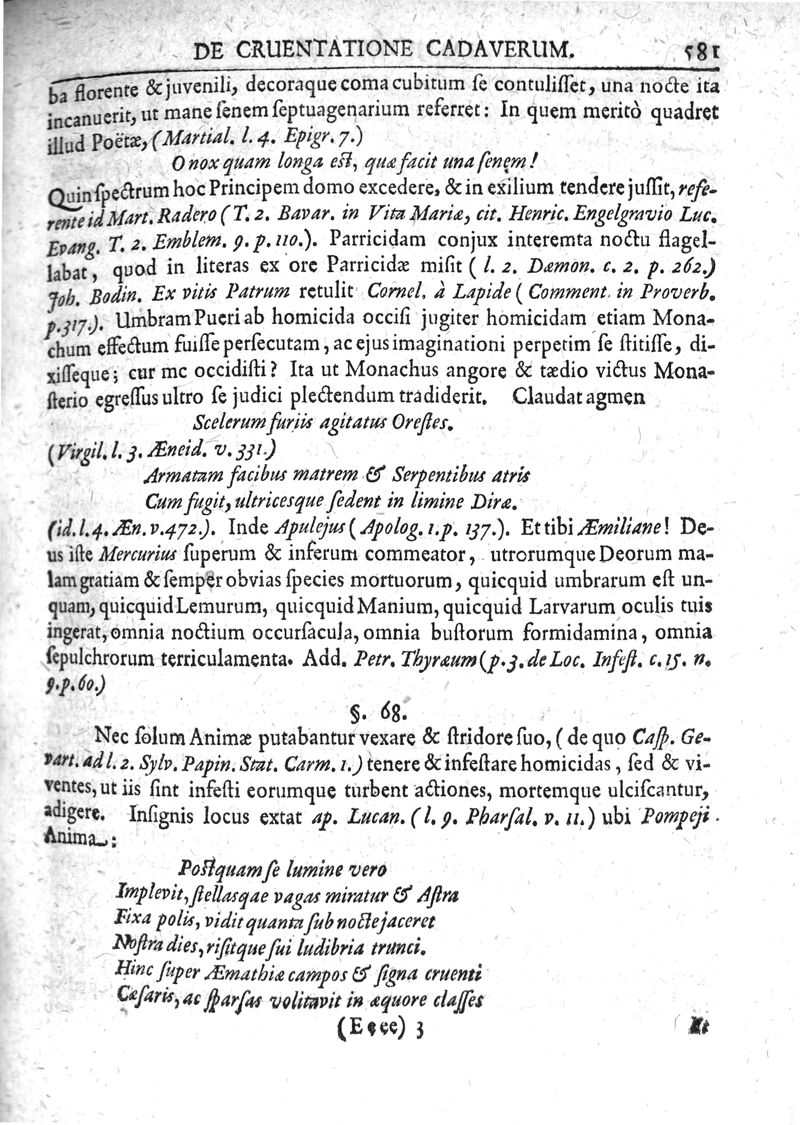 DE CRUENTATIONE CADAVERUM. 581
ba florente & juvenili, decoraque coma cubitum ſe contuliſſet, una nocte ita
incanuerit, ut mane ſenem ſeptuagenarium referret: In quem meritò quadret
illud Poëtæ, (Martial. l. 4. Epigr. 7.)
O nox quam longa eſt, quæ facit una ſenem!
Quin ſpectrum hoc Principem domo excedere, & in exilium tendere juſſit, refe-
rente id Mart. Radero (T. 2. Bavar. in Vita Mariæ, cit. Henric. Engelgravio Luc.
Evang. T. 2. Emblem. 9. p. 110.). Parricidam conjux interemta noctu flagel-
labat, quod in literas ex ore Parricidæ miſit (l. 2. Dæmon. c. 2. p. 262.)
Joh. Bodin. Ex vitis Patrum retulit Cornel. à Lapide (Comment. in Proverb.
p. 317.). Umbram Pueri ab homicida occiſi jugiter homicidam etiam Mona-
chum effectum fuiſſe perſecutam, ac ejus imaginationi perpetim ſe ſtitiſſe, di-
xiſſeque; cur me occidiſti? Ita ut Monachus angore & tædio victus Mona-
ſterio egreſſus ultro ſe judici plectendum tradiderit. Claudat agmen
Scelerum furiis agitatus Oreſtes.
(Virgil. l. 3. Æneid. v. 331.)
Armatam facibus matrem & Serpentibus atris
Cum fugit, ultricesque ſedent in limine Diræ.
(id. l. 4. Æn. v. 472.). Inde Apulejus (Apolog. 1. p. 137.). Et tibi Æmiliane! De-
us iſte Mercurius ſuperum & inferum commeator, utrorumque Deorum ma-
lam gratiam & ſemper obvias ſpecies mortuorum, quicquid umbrarum eſt un-
quam, quicquid Lemurum, quicquid Manium, quicquid Larvarum oculis tuis
ingerat, omnia noctium occurſacula, omnia buſtorum formidamina, omnia
ſepulchrorum terriculamenta. Add. Petr. Thyræum (p. 3. de Loc. Infeſt. c. 15. n.
9. p. 60.)
§. 68.
Nec ſolum Animæ putabantur vexare & ſtridore ſuo, (de quo Caſp. Ge-
vart. ad l. 2. Sylv. Papin. Stat. Carm. 1.) tenere & infeſtare homicidas, ſed & vi-
ventes, ut iis ſint infeſti eorumque turbent actiones, mortemque ulciſcantur,
adigere. Inſignis locus extat ap. Lucan. (l. 9. Pharſal. v. 11.) ubi Pompeji
Anima:
Poſtquam ſe lumine vero
Implevit, ſtellasqae vagas miratur & Aſtra
Fixa polis, vidit quanta ſub nocte jaceret
Noſtra dies, riſitque ſui ludibria trunci.
Hinc ſuper Æmathiæ campos & ſigna cruenti
Cæſaris, ac ſparſas volitavit in æquore claſſes
(Eeee) 3 Et